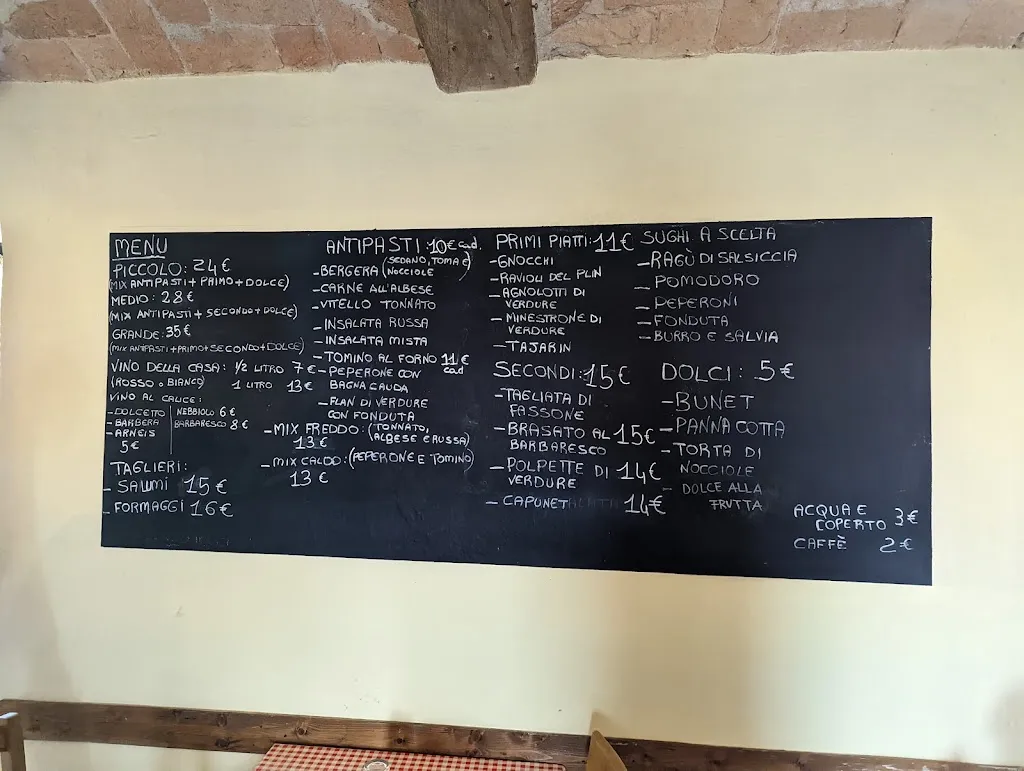 MENU
PICCOLO: 24€
(MIX ANTIPASTI + PRIMO + DOLCE)
MEDIO: 28€
(MIX ANTIPASTI + SECONDO + DOLCE)
GRANDE: 35€
(MIX ANTIPASTI + PRIMO + SECONDO + DOLCE)
VINO DELLA CASA: 1/2 LITRO 7€
(ROSSO O BIANCO) 1 LITRO 13€
VINO AL CALICE:
- DOLCETTO
- BARBERA
- ARNEIS
5€
NEBBIOLO 6€
BARBARESCO 8€
TAGLIERI:
- SALUMI 15€
- FORMAGGI 16€
ANTIPASTI: 10€ cad.
- BERGERA (SEDANO, TOMA E
NOCCIOLE)
- CARNE ALL'ALBESE
- VITELLO TONNATO
- INSALATA RUSSA
- INSALATA MISTA
- TOMINO AL FORNO 11€ cad
- PEPERONE CON
BAGNA CAUDA
- FLAN DI VERDURE
CON FONDUTA
- MIX FREDDO: (TONNATO,
13€ ALBESE E RUSSA)
- MIX CALDO: (PEPERONE E TOMINO)
13€
PRIMI PIATTI: 11€
- GNOCCHI
- RAVIOLI DEL PLIN
- AGNOLOTTI DI
VERDURE
- MINESTRONE DI
VERDURE
- TAJARIN
SECONDI: 15€
- TAGLIATA DI
FASSONE
- BRASATO AL 15€
BARBARESCO
- POLPETTE DI 14€
VERDURE
- CAPUNET 14€
SUGHI A SCELTA
- RAGÙ DI SALSICCIA
- POMODORO
- PEPERONI
- FONDUTA
- BURRO E SALVIA
DOLCI: 5€
- BUNET
- PANNA COTTA
- TORTA DI
NOCCIOLE
- DOLCE ALLA
FRUTTA
ACQUA E
COPERTO 3€
CAFFÈ 2€